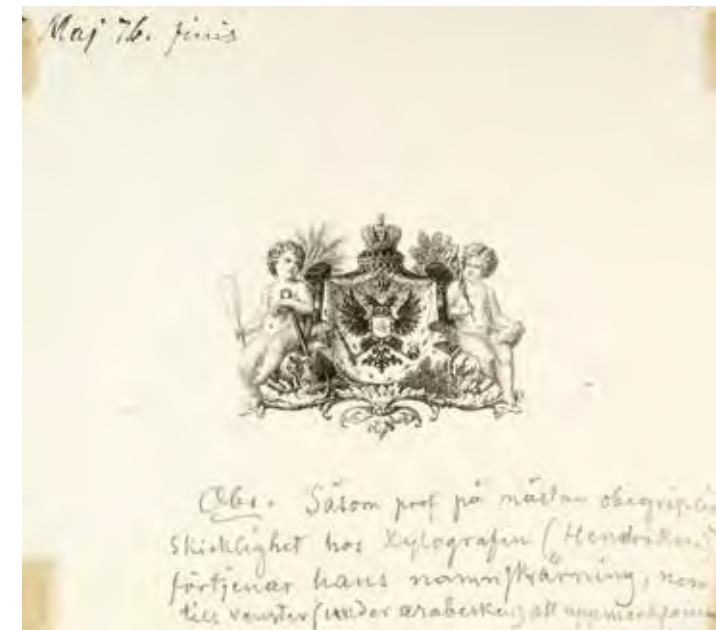 Maj 76. finis
Obs. Såsom prof på nästan obegriplig
skicklighet hos Xylografen (Hendriksen)
förtjenar hans namnskärning, ner
till venster (under arabesken) all